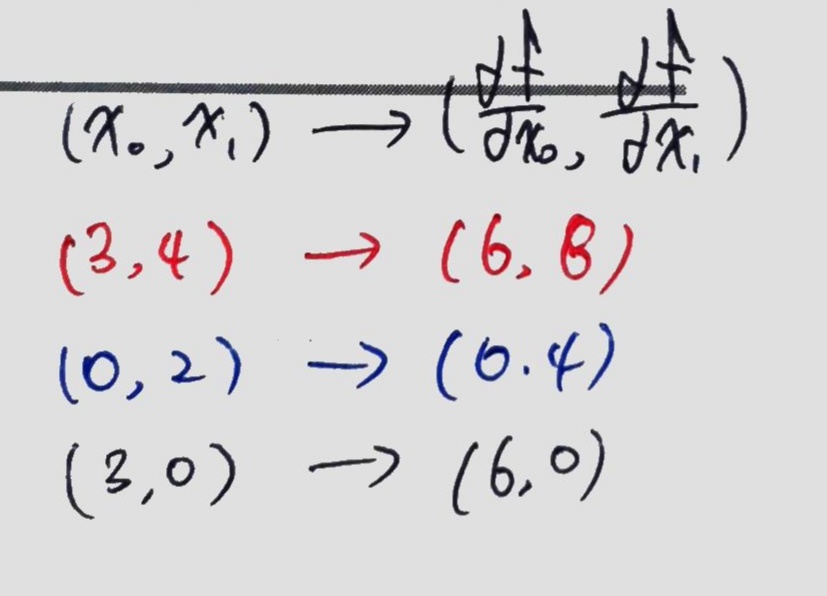 (x₀, x₁) → (df/dx₀, df/dx₁)
(3,4) → (6,8)
(0,2) → (0.4)
(3,0) → (6,0)